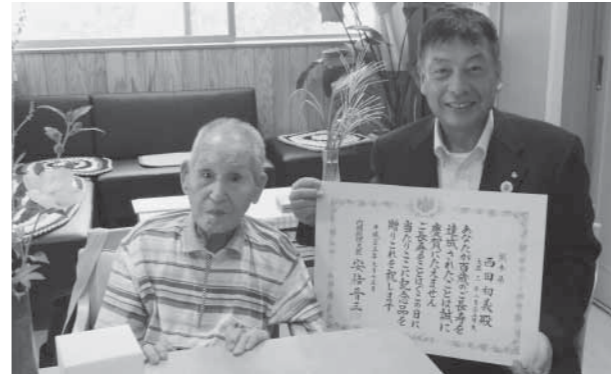 熊本県
西田初義殿
あなたが百歳のご長寿を
達成されたことは誠に
慶賀にたえません
ご長寿をことほぐ日に
当たりここに記念品を
贈りこれを祝します
内閣総理大臣 安倍晋三